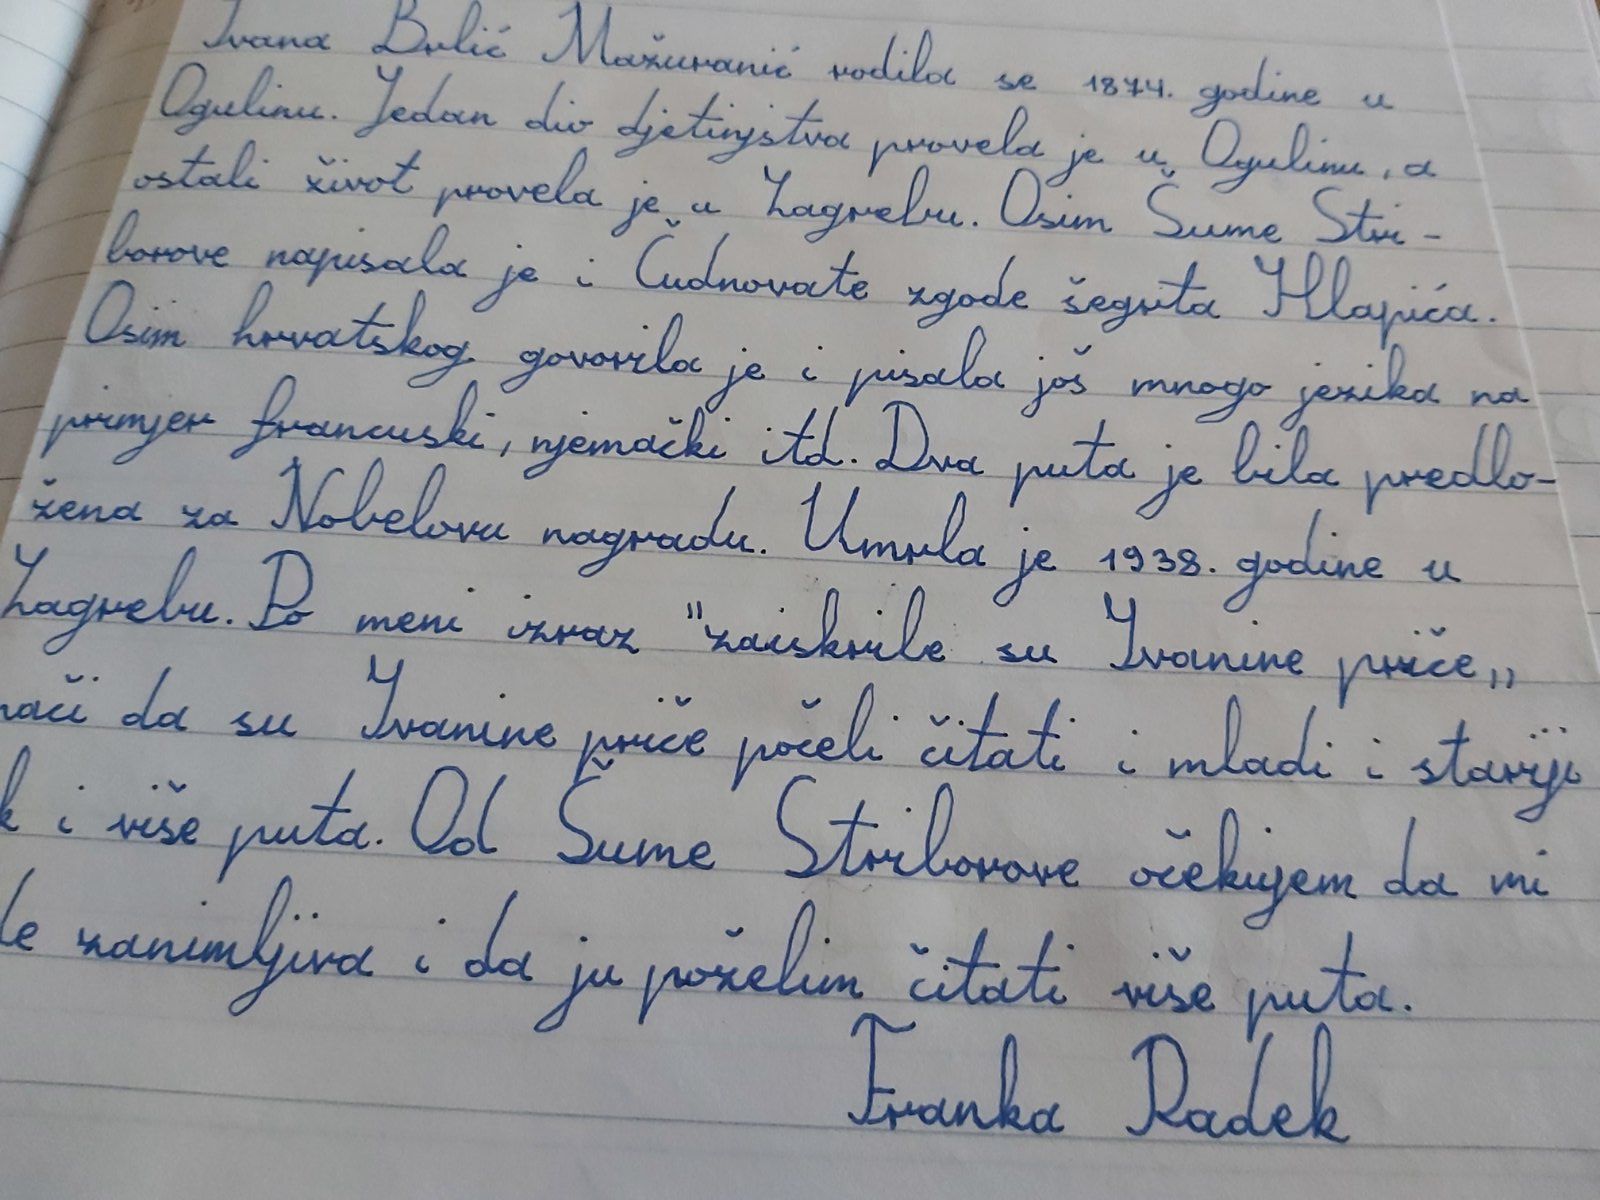 Ivana Brlić Mažuranić rodila se 1874. godine u
Ogulinu. Jedan dio djetinjstva provela je u Ogulinu, a
ostali život provela je u Zagrebu. Osim Šume Stri-
borove napisala je i Čudnovate zgode šegrta Hlapića.
Osim hrvatskog govorila je i pisala još mnogo jezika na
primjer francuski, njemački itd. Dva puta je bila predlo-
žena za Nobelovu nagradu. Umrla je 1938. godine u
Zagrebu. Po meni izraz "zaiskrile su Ivanine priče„
nači da su Ivanine priče počeli čitati i mladi i stariji
k i više puta. Od Šume Striborove očekujem da mi
de zanimljiva i da ju poželim čitati više puta.
Franka Radek